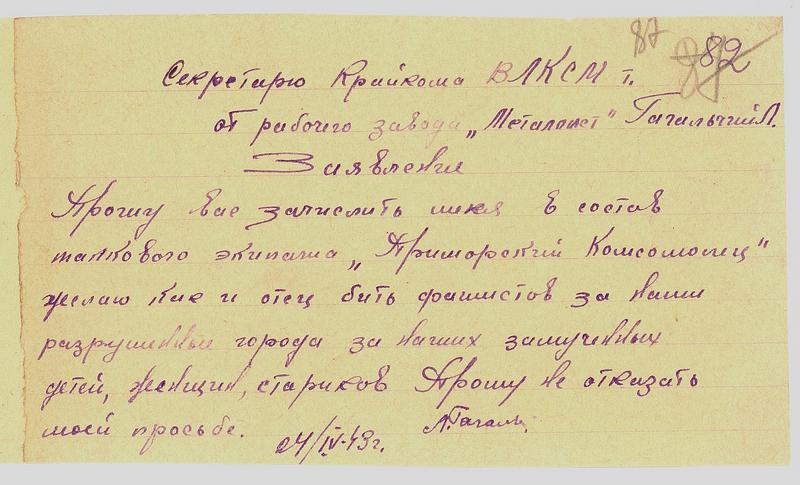 87
82
Секретарю Крайкома ВЛКСМ т.
от рабочего завода „Металлист" Гагальчий Л.
Заявление
Прошу вас зачислить меня в состав
танкового экипажа „Приморский Комсомолец"
желаю как и отец бить фашистов за наши
разрушенные города за наших замученных
детей, женщин, стариков Прошу не отказать
моей просьбе.
24/IV-43г. Л.Гагаль.